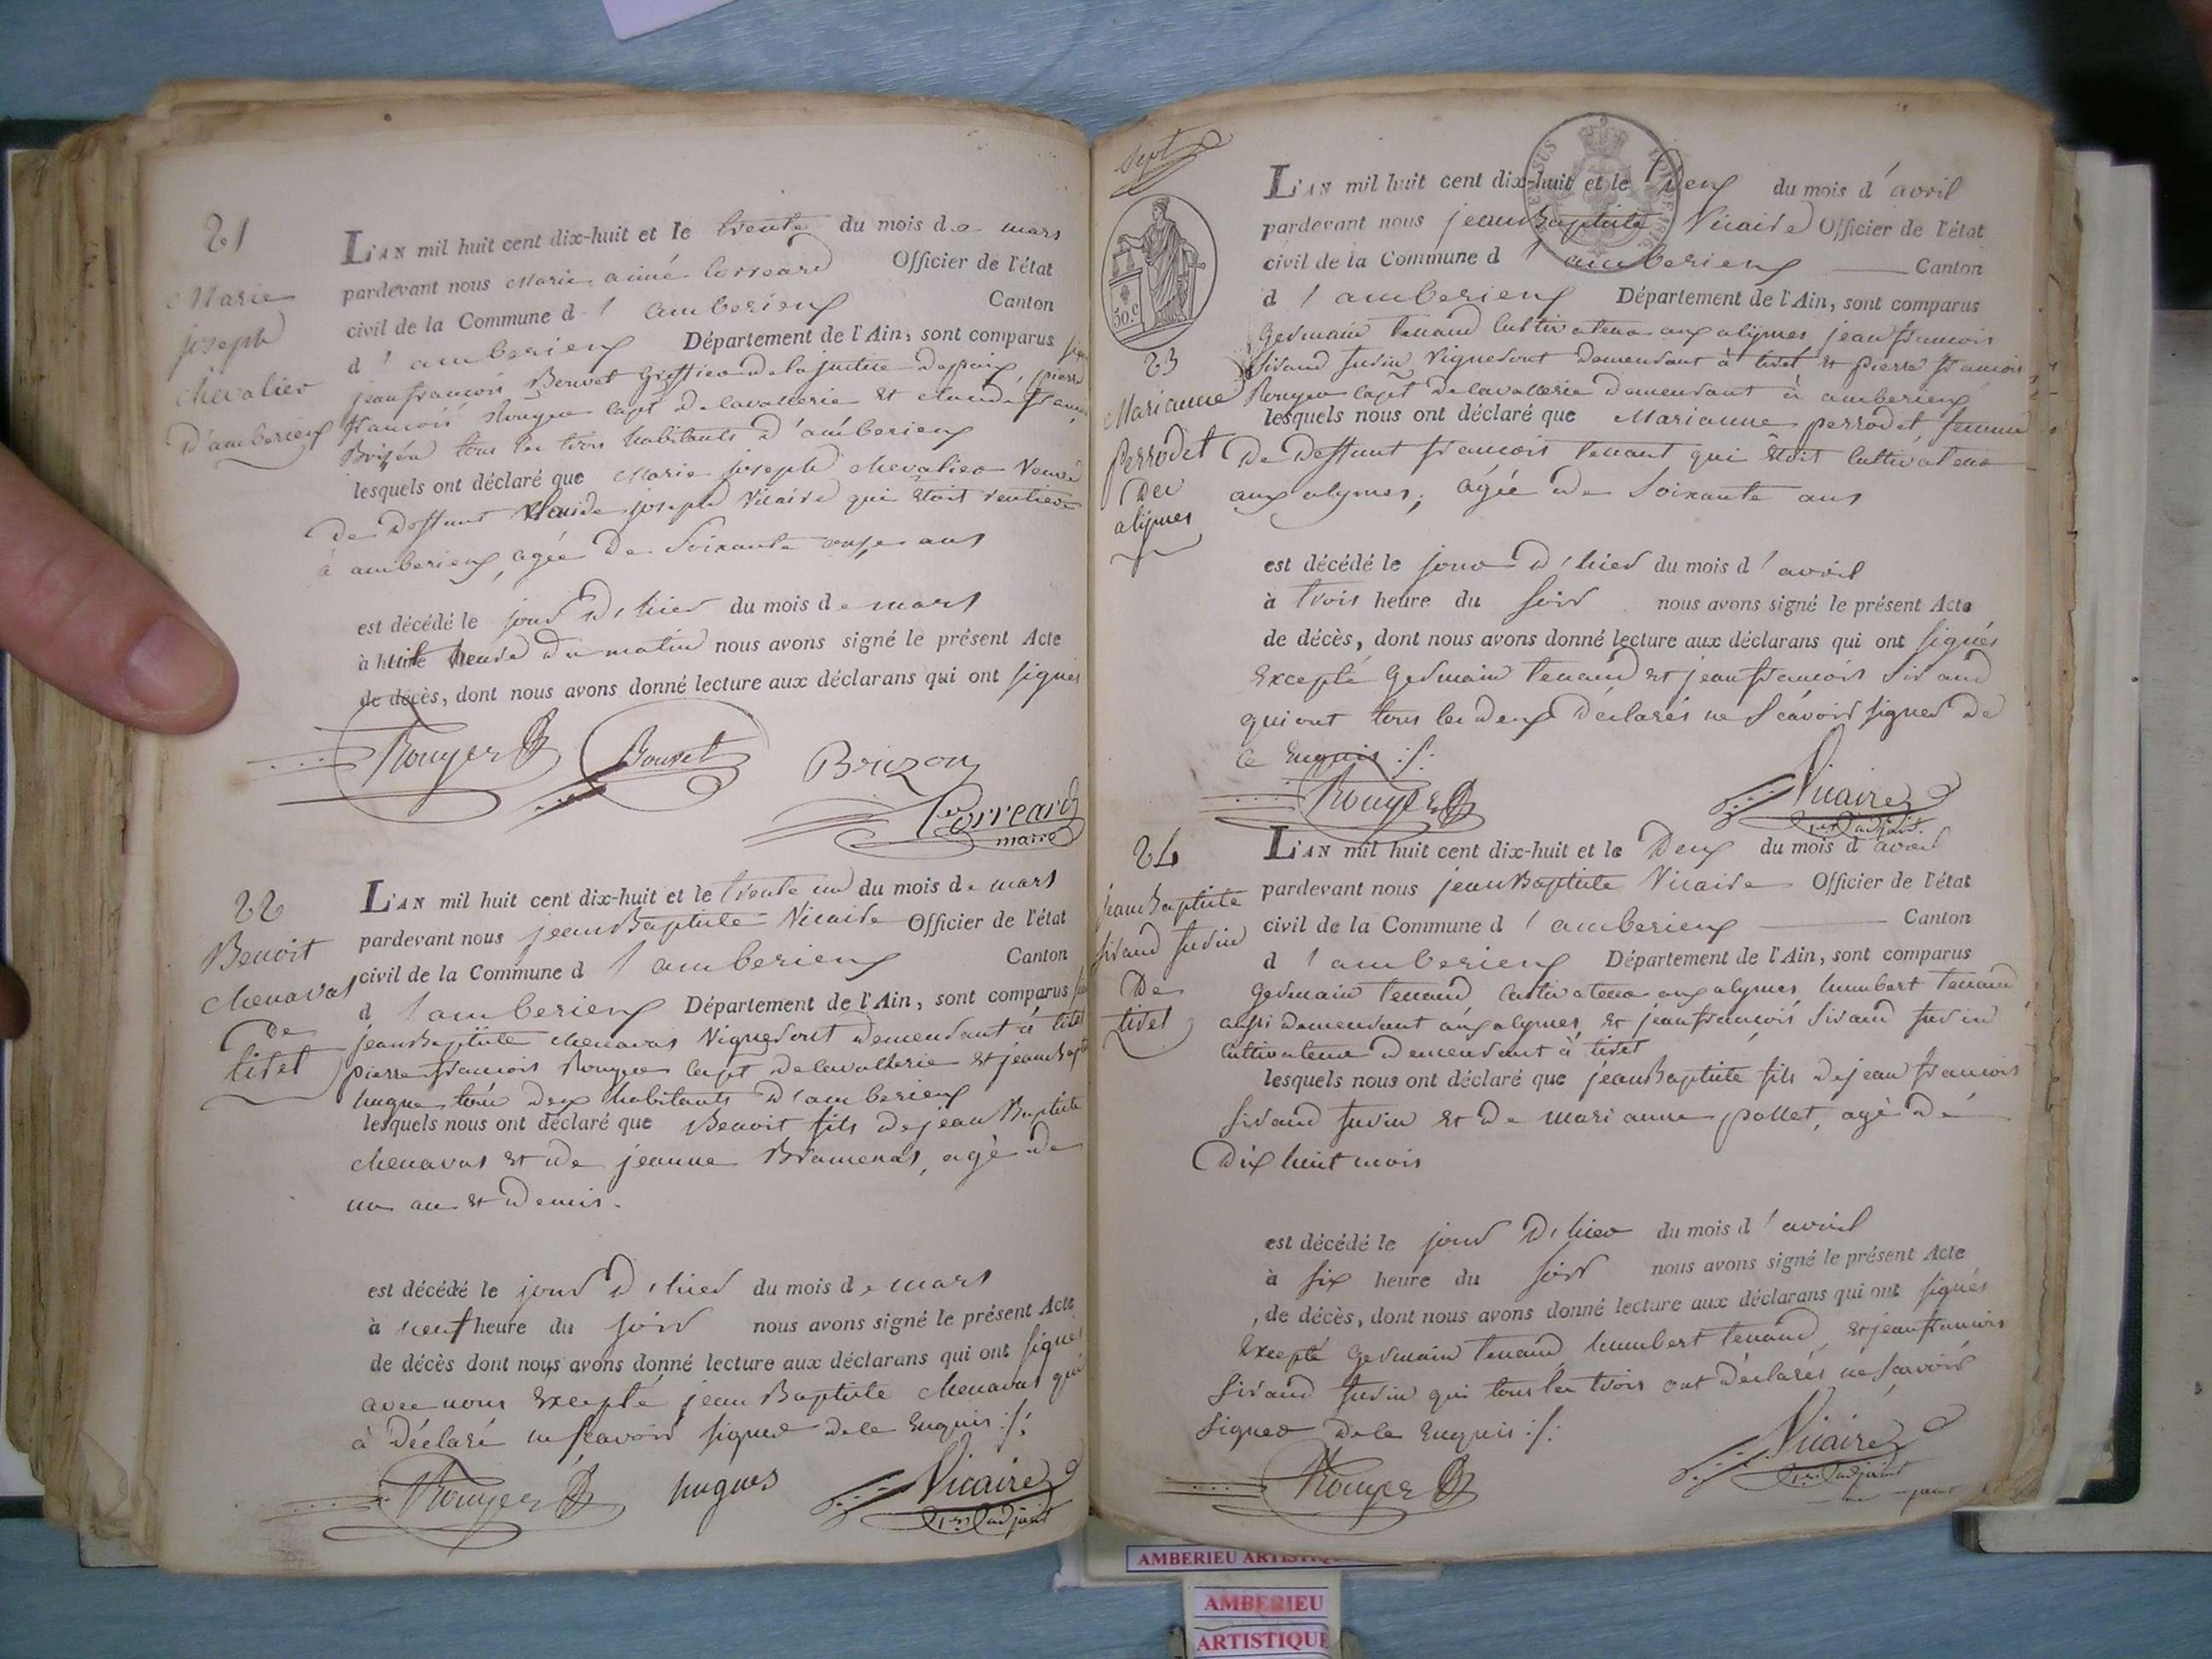 21
Marie
joseph
chevalier
D'amberieux
L'AN mil huit cent dix-huit et le trente du mois de mars
pardevant nous Marie aimé Corréard Officier de l'état
civil de la Commune d'amberieux Canton
d'amberieux Département de l'Ain, sont comparus
jean francois Bouvet Greffier de la justice de paix, pierre
francois Rouyer capt de cavallerie et claude
Brizon tous les trois habitants d'amberieux
lesquels ont déclaré que Marie joseph chevalier veuve
De Deffunt Claude joseph Vicaire qui étoit rentier
à amberieux, agée De Soixante onze ans
est décédé le jour D'hier du mois de mars
à huit heure du matin nous avons signé le présent Acte
de décès, dont nous avons donné lecture aux déclarans qui ont signés
Rouyer Bouvet Brizon
Corréard
maire
22
Benoit
chenavas
De
tiret
L'AN mil huit cent dix-huit et le trente un du mois de mars
pardevant nous jean Baptiste Vicaire Officier de l'état
civil de la Commune d'amberieux Canton
d'amberieux Département de l'Ain, sont comparus
jean Baptiste chenavas Vigneront demeurant à tiret
pierre francois Rouyer capt de cavallerie et jean Bapt
hugue tous deux habitants d'amberieux
lesquels nous ont déclaré que Benoit fils de jean Baptiste
chenavas et de jeanne Bramenas, agé de
un an et demis.
est décédé le jour D'hier du mois de mars
à neuf heure du soir nous avons signé le présent Acte
de décès dont nous avons donné lecture aux déclarans qui ont signés
avec nous Excepté jean Baptiste chenavas qui
à Déclaré ne scavoir signer de ce Enquis ./.
Rouyer hugues Vicaire
1er adjoint
Sept
50. c
23
Marianne
Perrodet
Des
alymes
L'AN mil huit cent dix-huit et le Deux du mois d'avril
pardevant nous jean Baptiste Vicaire Officier de l'état
civil de la Commune d'amberieux Canton
d'amberieux Département de l'Ain, sont comparus
Germain tenand Cultivateur aux alymes jean francois
Sirand Vigneront Demeurant à tiret et pierre francois
Rouyer capt de cavallerie demeurant à amberieux
lesquels nous ont déclaré que Marianne perrodet femme
De Deffunt francois tenant qui étoit Cultivateur
aux alymes, agée de Soixante ans
est décédé le jour D'hier du mois d'avril
à trois heure du soir nous avons signé le présent Acte
de décès, dont nous avons donné lecture aux déclarans qui ont signés
Excepté Germain tenand et jean francois Sirand
qui ont tous les deux Déclarés ne Scavoir signer De
ce Enquis ./.
Rouyer Vicaire
1er adjoint.
24
jean Baptiste
Sirand
De
tiret
L'AN mil huit cent dix-huit et le Deux du mois d'avril
pardevant nous jean Baptiste Vicaire Officier de l'état
civil de la Commune d'amberieux Canton
d'amberieux Département de l'Ain, sont comparus
Germain tenand Cultivateur aux alymes humbert tenand
aussi demeurant aux alymes et jean francois Sirand
Cultivateur demeurant à tiret
lesquels nous ont déclaré que jean Baptiste fils de jean francois
Sirand et De marianne pollet, agé de
Dix huit mois
est décédé le jour D'hier du mois d'avril
à six heure du soir nous avons signé le présent Acte
de décès, dont nous avons donné lecture aux déclarans qui ont signés
Excepté Germain tenand humbert tenand et jean francois
Sirand qui tous les trois ont Déclarés ne scavoir
signer De ce Enquis ./.
Rouyer Vicaire
1er adjoint
AMBERIEU ARTISTIQUE
AMBERIEU
ARTISTIQUE